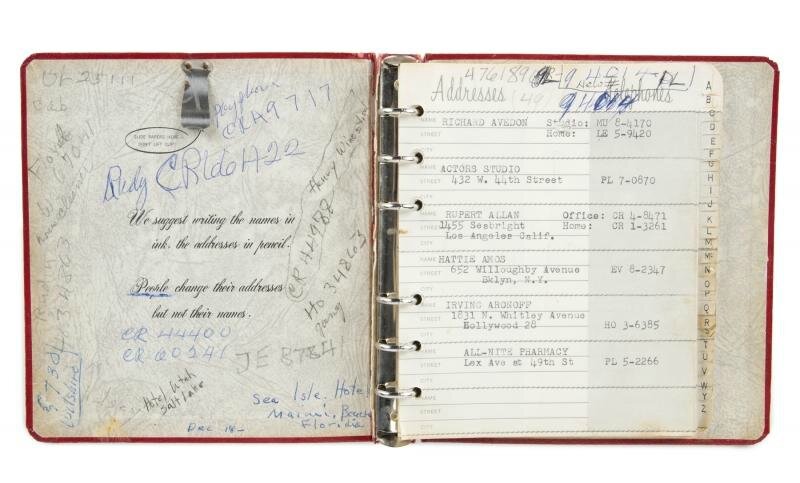 UL 25111
Cab
playphone
CR A9717
SLIDE PAPERS HERE...
DON'T LIFT CLIP
Rudy CR16A22
Henry Winesten
We suggest writing the names in
ink, the addresses in pencil.
People change their addresses
but not their names.
CRA4988
Ho 34863
Rudy
34863
CR 44400
CR 60241
JE 8784
Wilshire
Hotel Utah
Salt Lake
Sea Isle. Hotel
Maimi, Beach
Florida
Dec 18-
476189
New #
Addresses Telephones
NAME RICHARD AVEDON Studio: MU 8-4170
STREET Home: LE 5-9420
CITY
NAME ACTORS STUDIO
STREET 432 W. 44th Street PL 7-0870
CITY
NAME RUPERT ALLAN Office: CR 4-8471
STREET 1455 Seabright Home: CR 1-3261
CITY Los Angeles Calif.
NAME HATTIE AMOS
STREET 652 Willoughby Avenue EV 8-2347
CITY Bklyn, N.Y.
NAME IRVING ARONOFF
STREET 1831 N. Whitley Avenue
CITY Hollywood 28 HO 3-6385
NAME ALL-NITE PHARMACY
STREET Lex Ave at 49th St PL 5-2266
CITY
NAME
STREET
CITY
A
B
C
D
E
F
G
H
I
J
K
L
M
N
O
P
Q
R
S
T
U
V
W
X
Y
Z